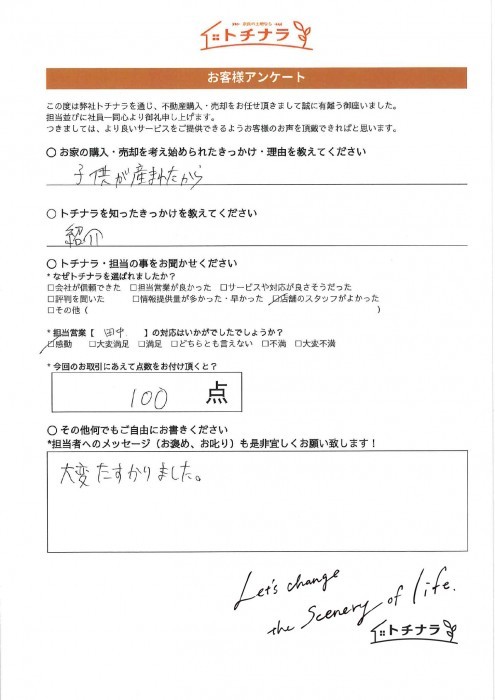 トチナラ
お客様アンケート
この度は弊社トチナラを通じ、不動産購入・売却をお任せ頂きまして誠に有難う御座いました。
担当並びに社員一同心より御礼申し上げます。
つきましては、より良いサービスをご提供できるようお客様のお声を頂戴できればと思います。
〇 お家の購入・売却を考え始められたきっかけ・理由を教えてください
子供が産まれたから
〇 トチナラを知ったきっかけを教えてください
紹介
〇 トチナラ・担当の事をお聞かせください
* なぜトチナラを選ばれましたか？
□会社が信頼できた □担当営業が良かった □サービスや対応が良さそうだった
□評判を聞いた □情報提供量が多かった・早かった □店舗のスタッフがよかった
□その他（ ）
* 担当営業【 田中 】の対応はいかがでしたでしょうか？
□感動 □大変満足 □満足 □どちらとも言えない □不満 □大変不満
* 今回のお取引にあえて点数をお付け頂くと？
100 点
〇 その他何でもご自由にお書きください
*担当者へのメッセージ（お褒め、お叱り）も是非宜しくお願い致します！
大変たすかりました。
Let's change
the Scenery of life.
トチナラ